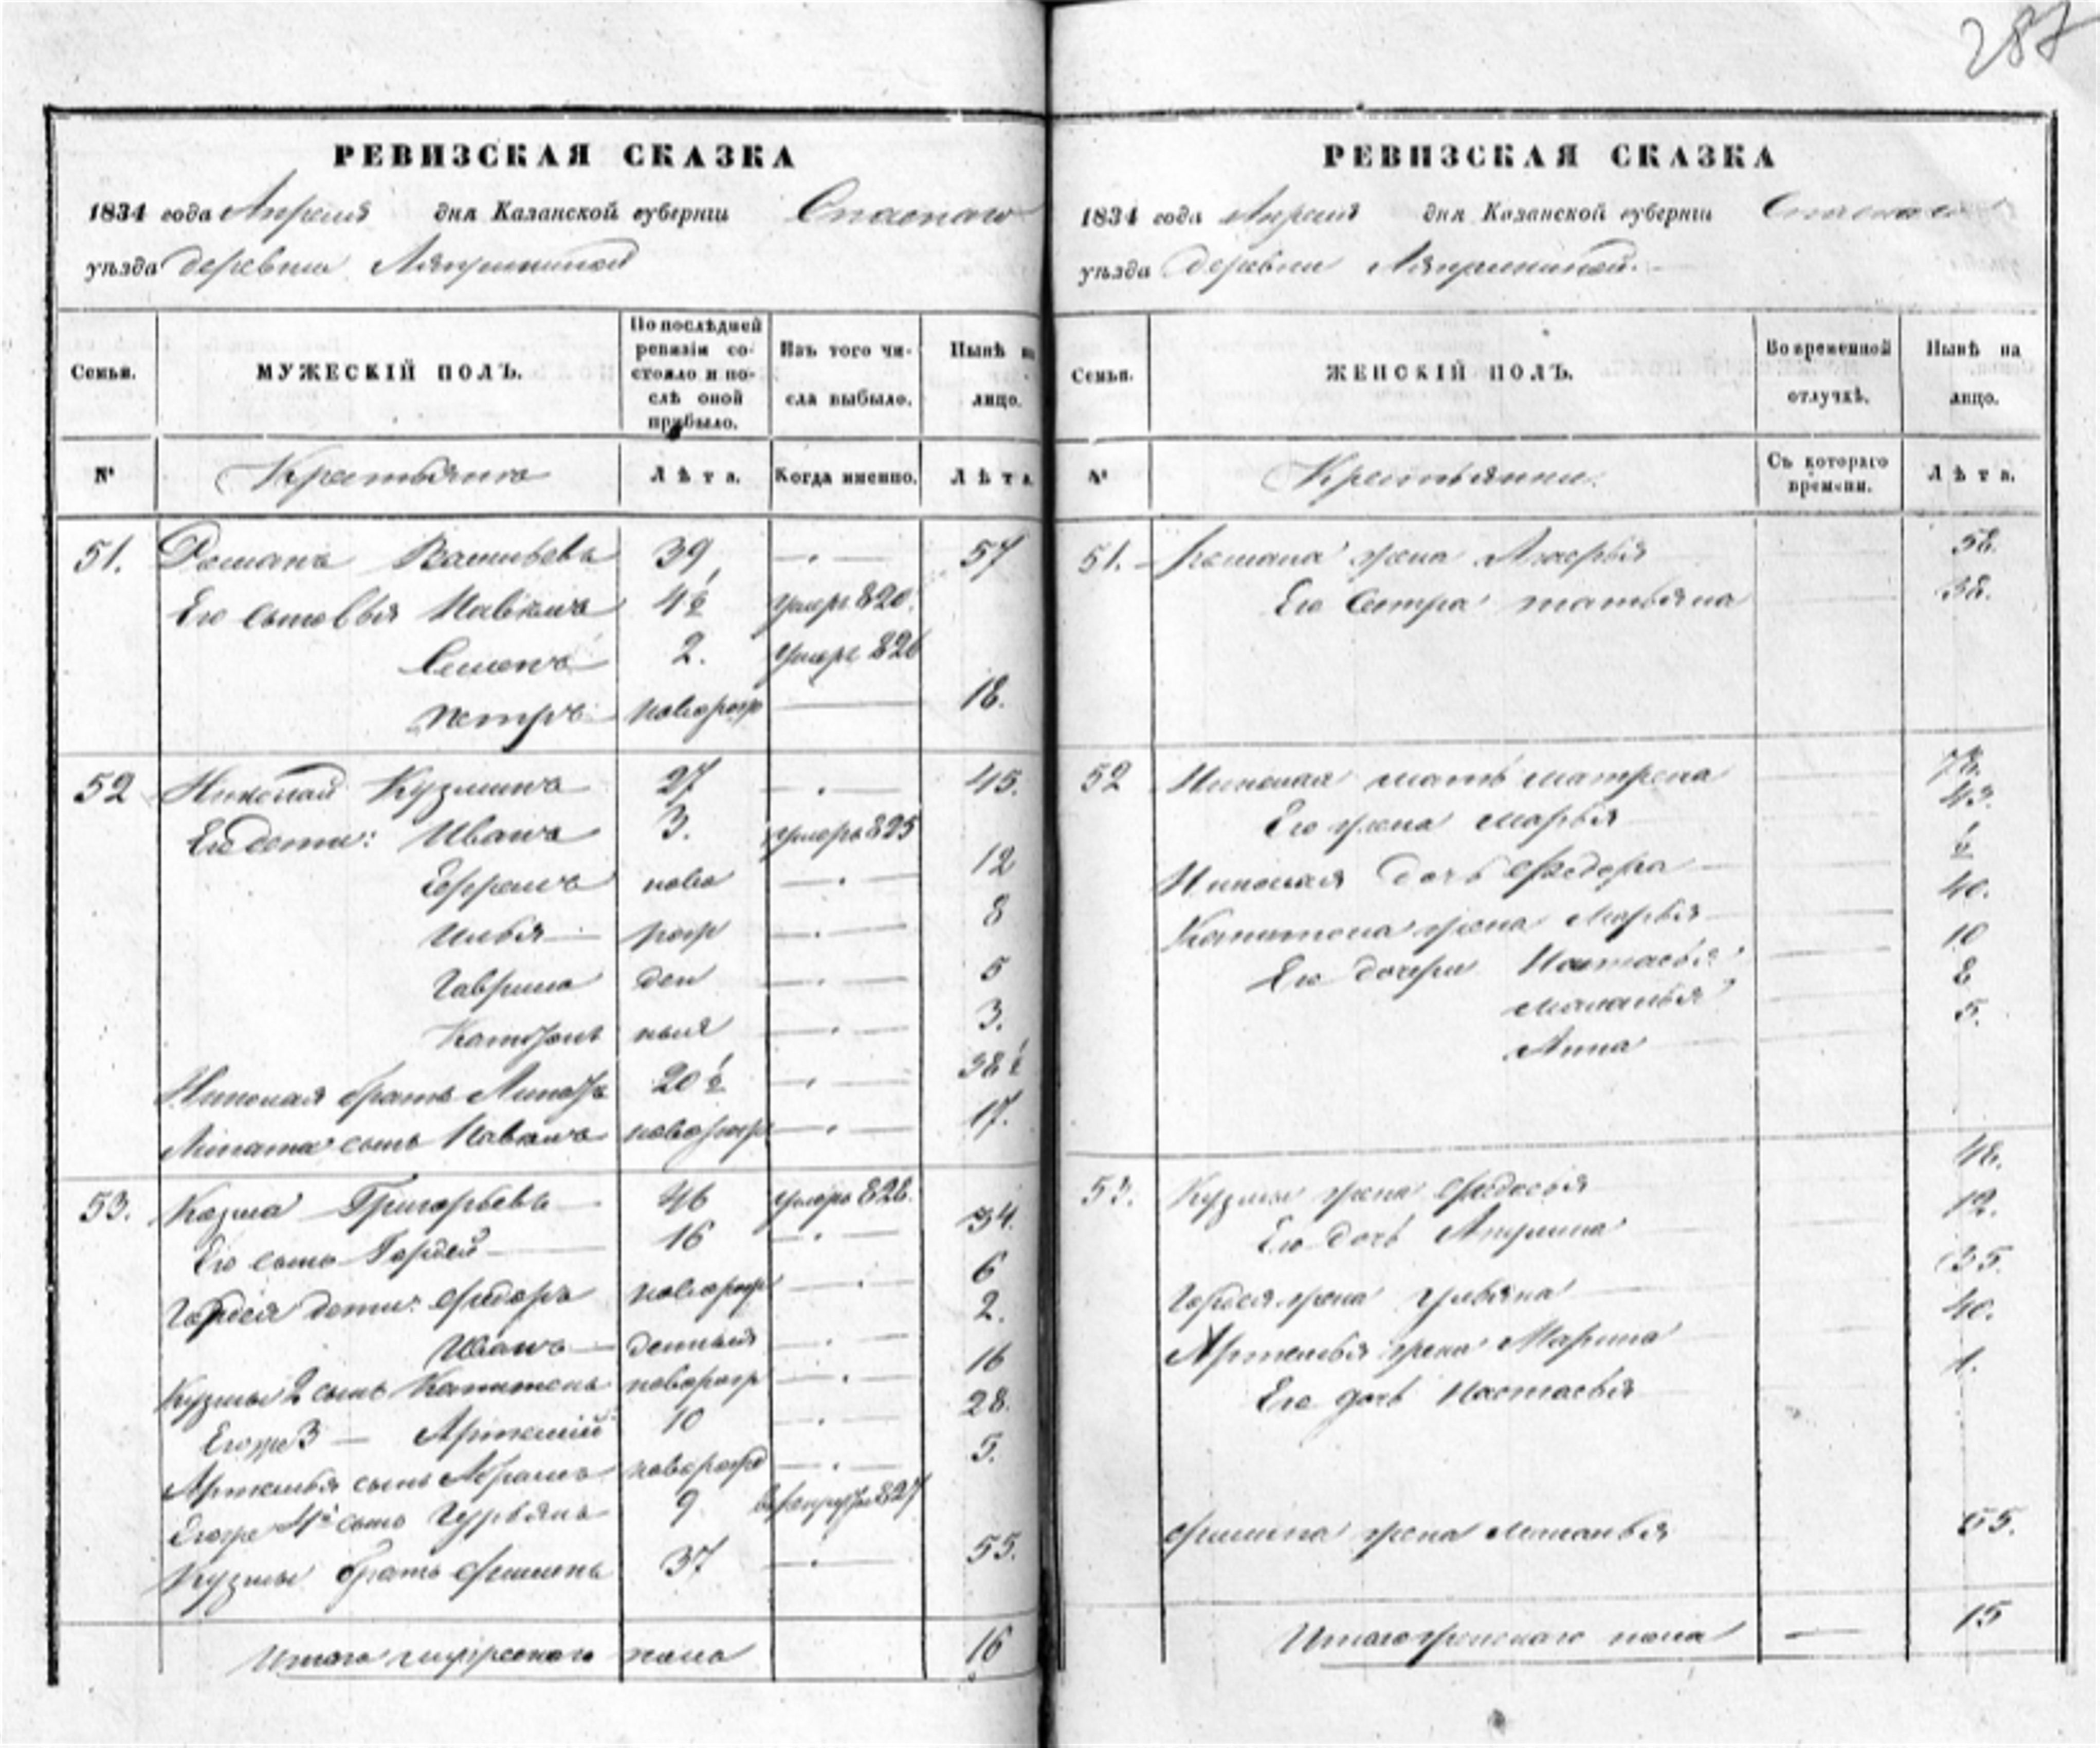 287
РЕВИЗСКАЯ СКАЗКА
1834 года Апреля дня Казанской губернии Спаскаго
уѣзда деревни
Семьи. МУЖЕСКІЙ ПОЛЪ. По послѣдней ревизіи состояло и послѣ оной прибыло. Изъ того числа выбыло. Нынѣ на лицо.
№ Крестьянъ Лѣта. Когда именно. Лѣта.
51. Романъ Васильевъ 39 — 57
Его сыновья Павелъ 4½ умеръ 820.
Семенъ 2. умеръ 826
Петръ новорож — 18.
52 Николай Кузминъ 27 — 45.
Его дети: Иванъ 3. умеръ 825
Ефремъ ново — 12
Илья рож — 8
Гаврила ден — 5
ныя — 3.
Николая братъ 20½ — 38½
сынъ Павелъ новорож — 17.
53. Козма Григорьевъ 46 умеръ 828.
Его сынъ Гордей 16 — 34.
Гордея дети: Федоръ новорож — 6
Иванъ денныя — 2.
Кузмы 2 сынъ Капитонъ новорож — 16
Егоже 3 — Артемий 10 — 28.
Артемья сынъ Абрамъ новорожд — 5.
Егоже 4й сынъ Гурьянъ 9 827
Кузмы братъ Филипъ 37 — 55.
Итого мужескаго пола 16
РЕВИЗСКАЯ СКАЗКА
1834 года Апреля дня Казанской губернии Спаскаго
уѣзда деревни
Семьи. ЖЕНСКІЙ ПОЛЪ. Во временной отлучкѣ. Нынѣ на лицо.
№ Крестьянки. Съ котораго времени. Лѣта.
51. Романа жена Лукерья 58.
Его сестра татьяна 38.
52 Николая мать матрена
Его жена марья 43.
Николая дочь Федора ½
Капитона жена Марья 40.
Его дочери Настасья 10
маланья 8
Анна 5.
53. Кузмы жена Федосья 48.
Его дочь Акулина 12.
Гордея жена Ульяна 35.
Артемья жена Марина 40.
Его дочь Настасья 1.
Филипа жена маланья 55.
Итого женскаго пола — 15